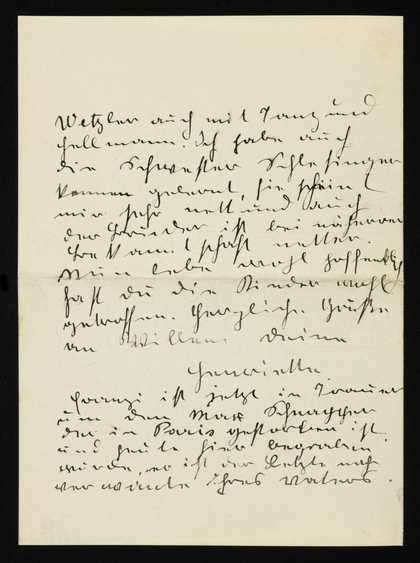 Wetzler auch mit Tanz und
Hellmann. Ich habe auch
die Schwester Schlesinger
kennen gelernt, sie scheint
mir sehr nett und auch
der Bruder ist bei näherer
Bekanntschaft netter.
Nun lebe wohl hoffentlich
hast du die Kinder wohl
getroffen. Herzliche Grüße
an Willem Deine
Henriette
Franzi ist jetzt in Trauer
um den Max
der in Paris gestorben ist
und heute hier begraben
wurde, er ist der letzte nahe
verwandte ihres Vaters.